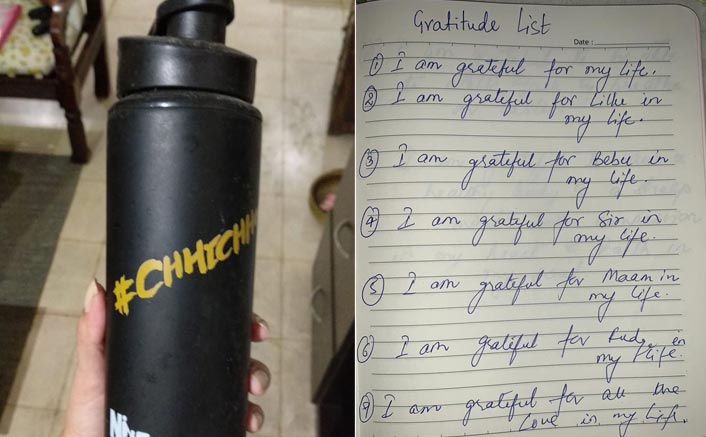 #CHHICHH
Gratitude List
Date :
① I am grateful for my life.
② I am grateful for Lillu in
my life.
③ I am grateful for Bebu in
my life.
④ I am grateful for Sir in
my life.
⑤ I am grateful for Maam in
my life.
⑥ I am grateful for Fudge in
my life.
⑦ I am grateful for all the
Love in my life.